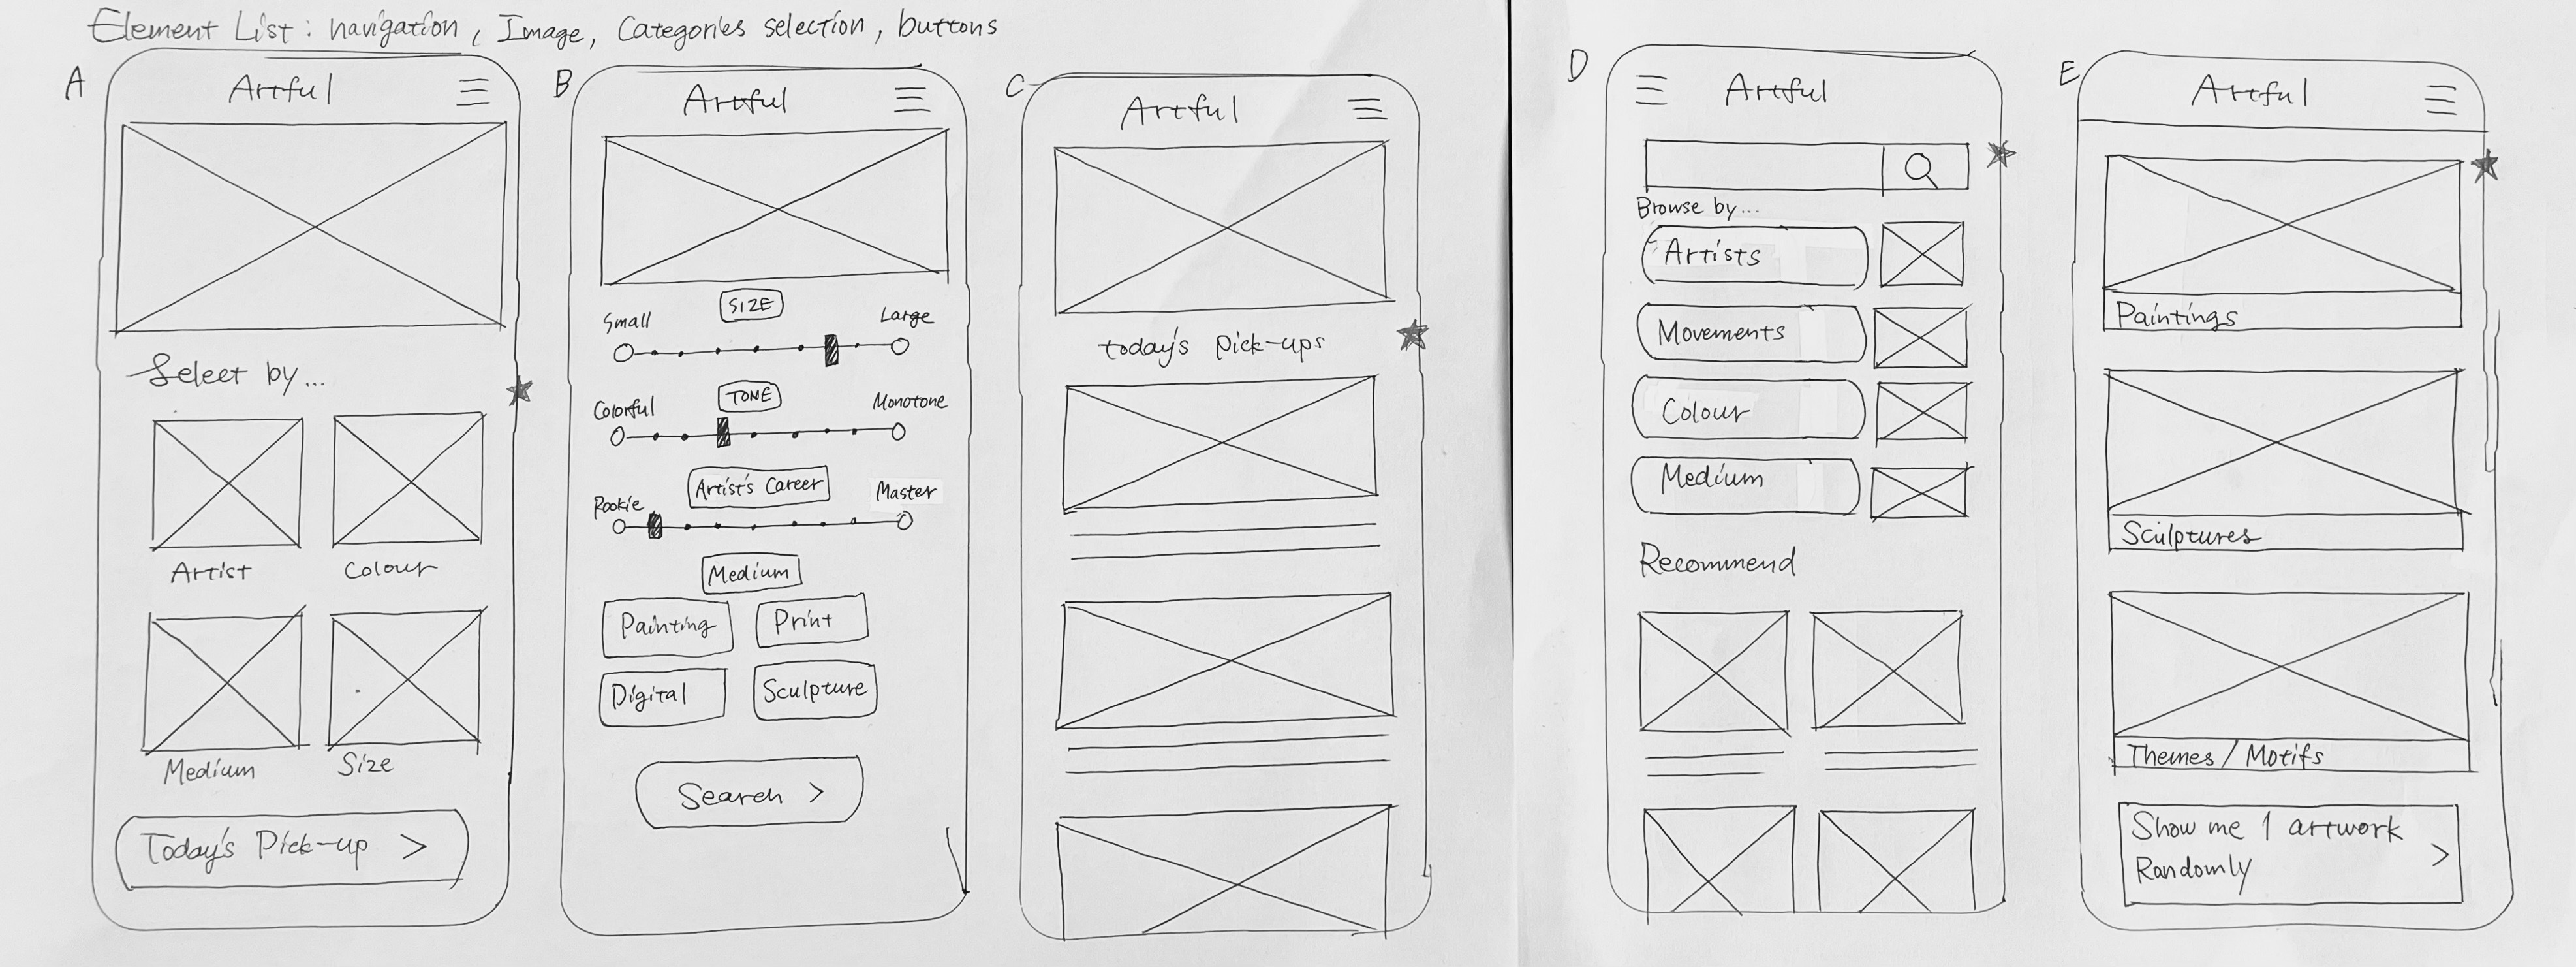 Element List: navigation, Image, Categories selection, buttons
A
Artful
Select by...
Artist
Colour
Medium
Size
Today's Pick-up >
B
Artful
SIZE
Small
Large
TONE
Colorful
Monotone
Artist's Career
Rookie
Master
Medium
Painting
Print
Digital
Sculpture
Search >
C
Artful
today's pick-ups
D
Artful
Browse by...
Artists
Movements
Colour
Medium
Recommend
E
Artful
Paintings
Sculptures
Themes / Motifs
Show me 1 artwork
Randomly >